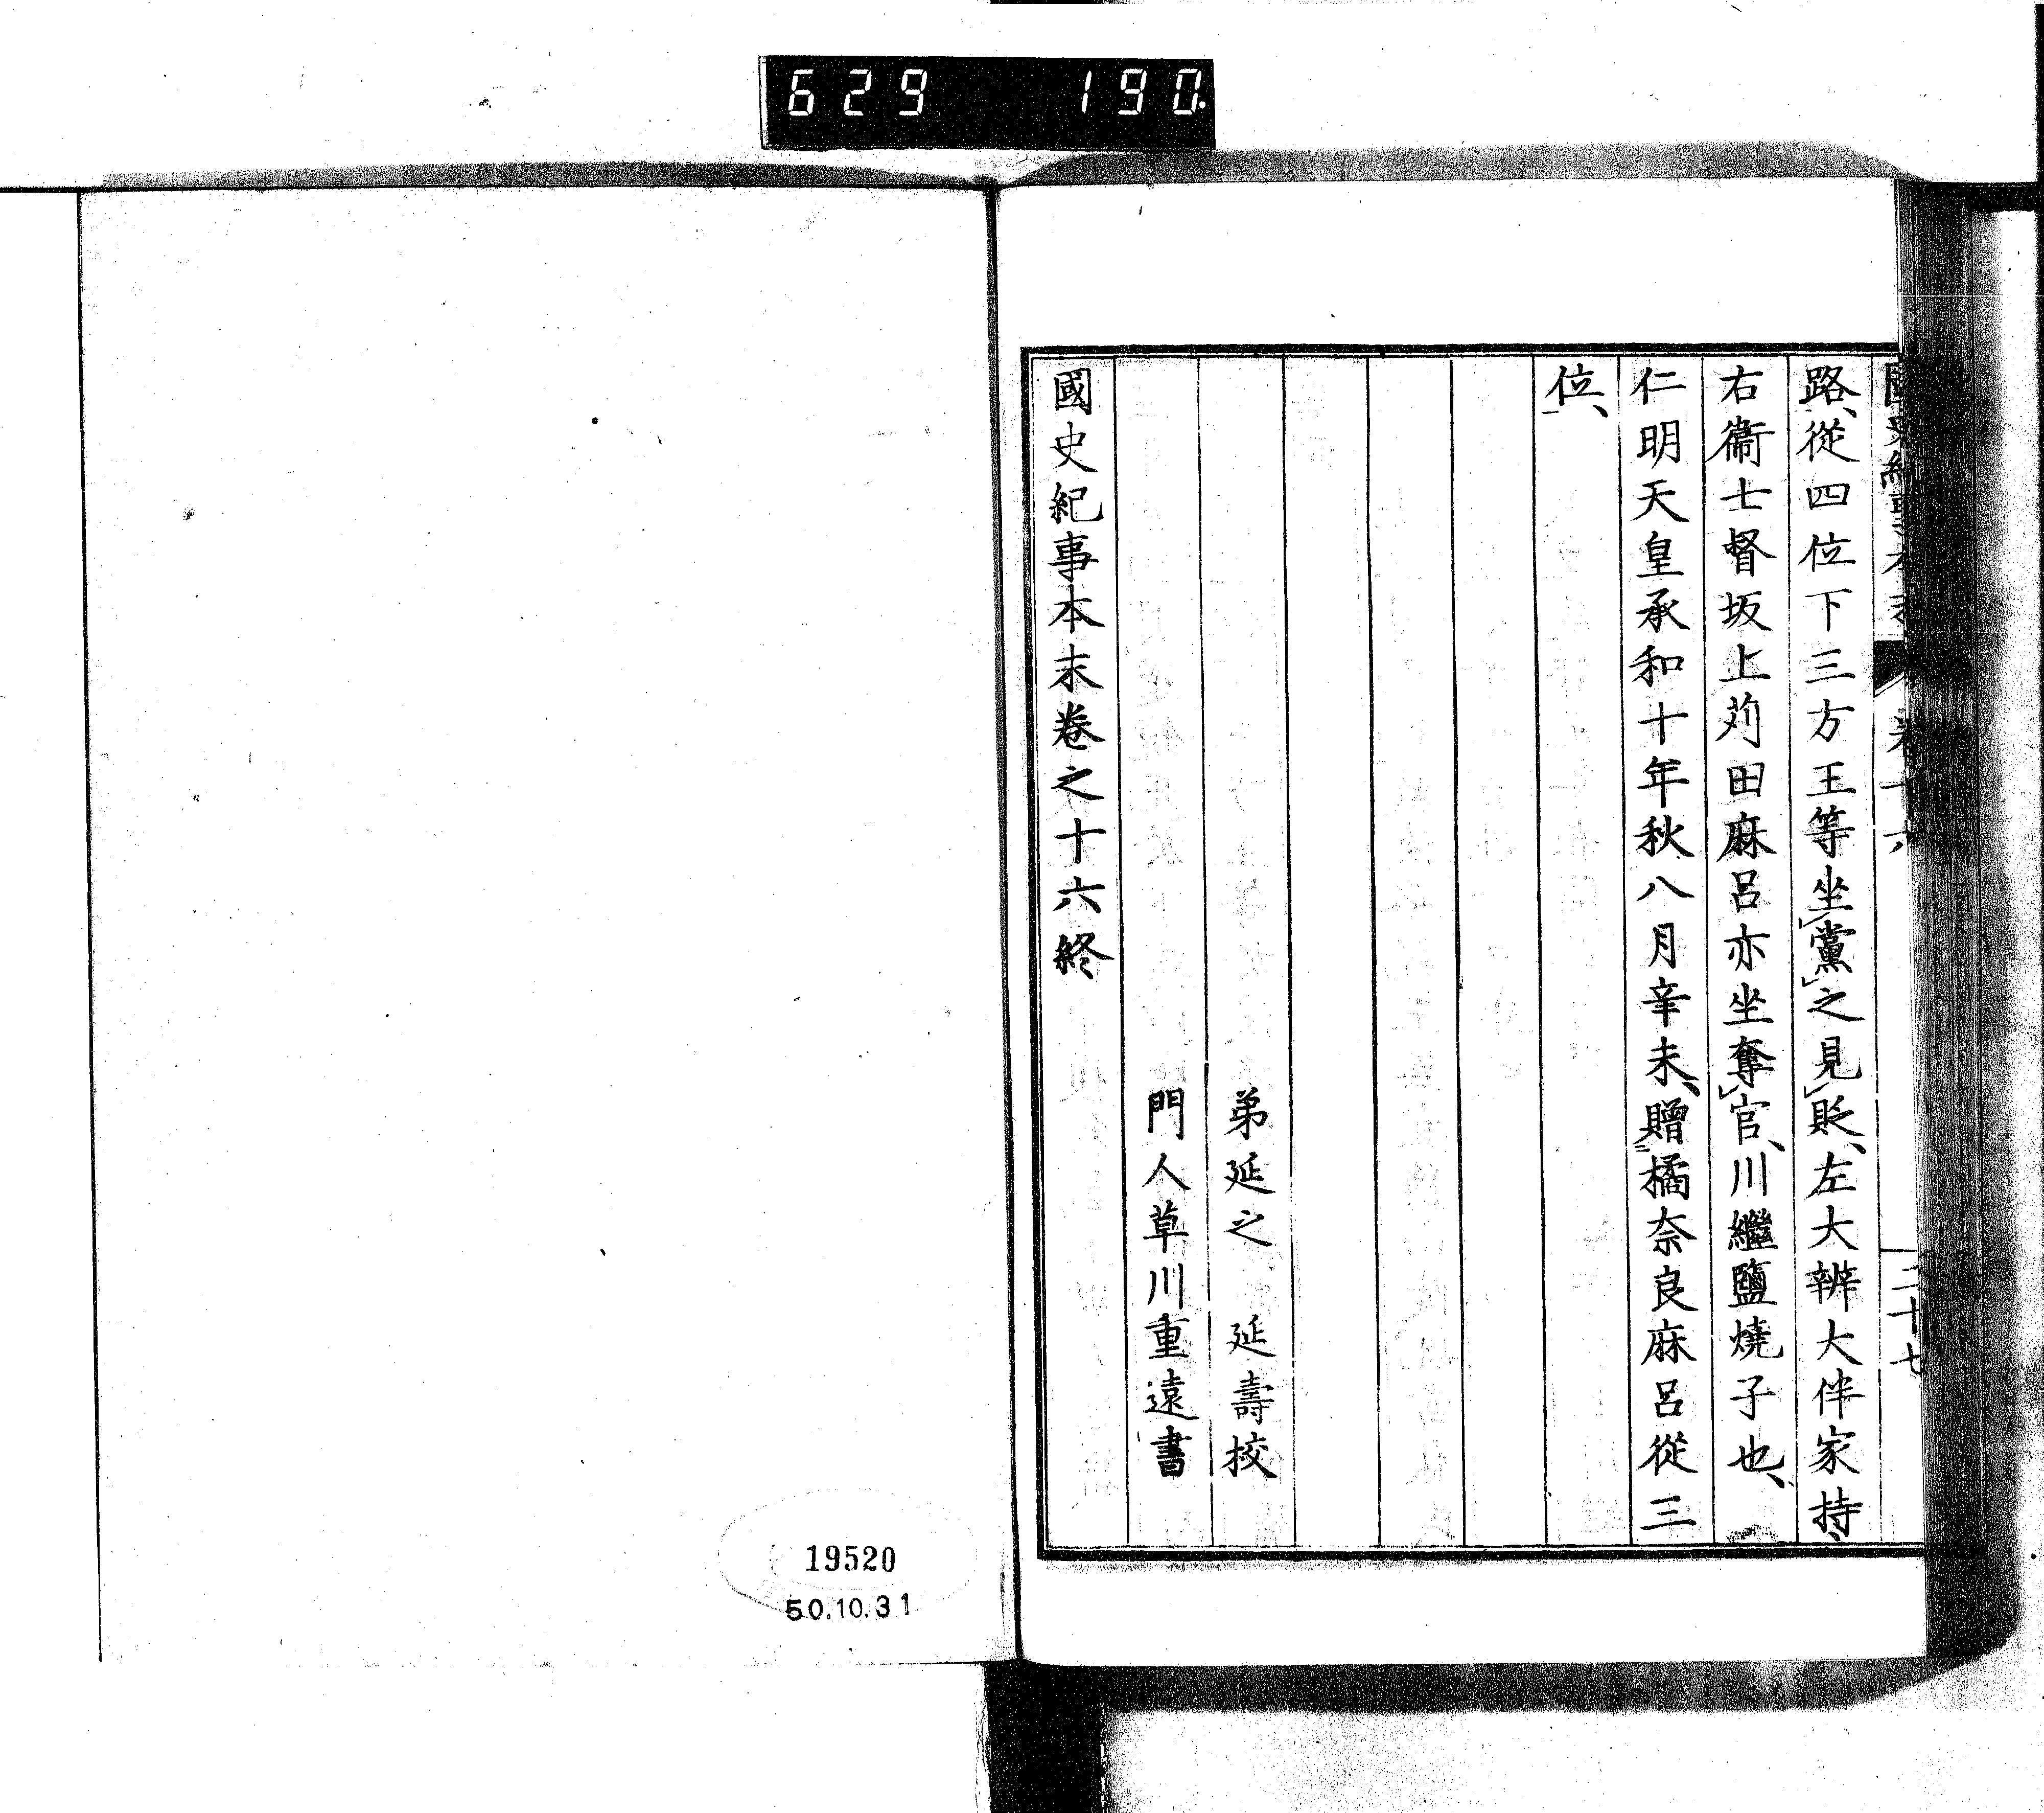 629 190
路、從四位下三方王等坐黨之見貶、左大辨大伴家持、
右衞士督坂上苅田麻呂亦坐奪官、川繼鹽燒子也、
仁明天皇承和十年秋八月辛未、贈橘奈良麻呂從三
位、
弟延之 延壽挍
門人草川重遠書
國史紀事本末卷之十六終
19520
50.10.31